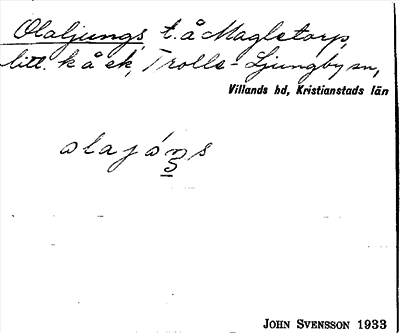 Olaljungs, t. å Magletorp,
litt. k å ek, Trolle-Ljungby sn,
Villands hd, Kristianstads län
olajóns
JOHN SVENSSON 1933